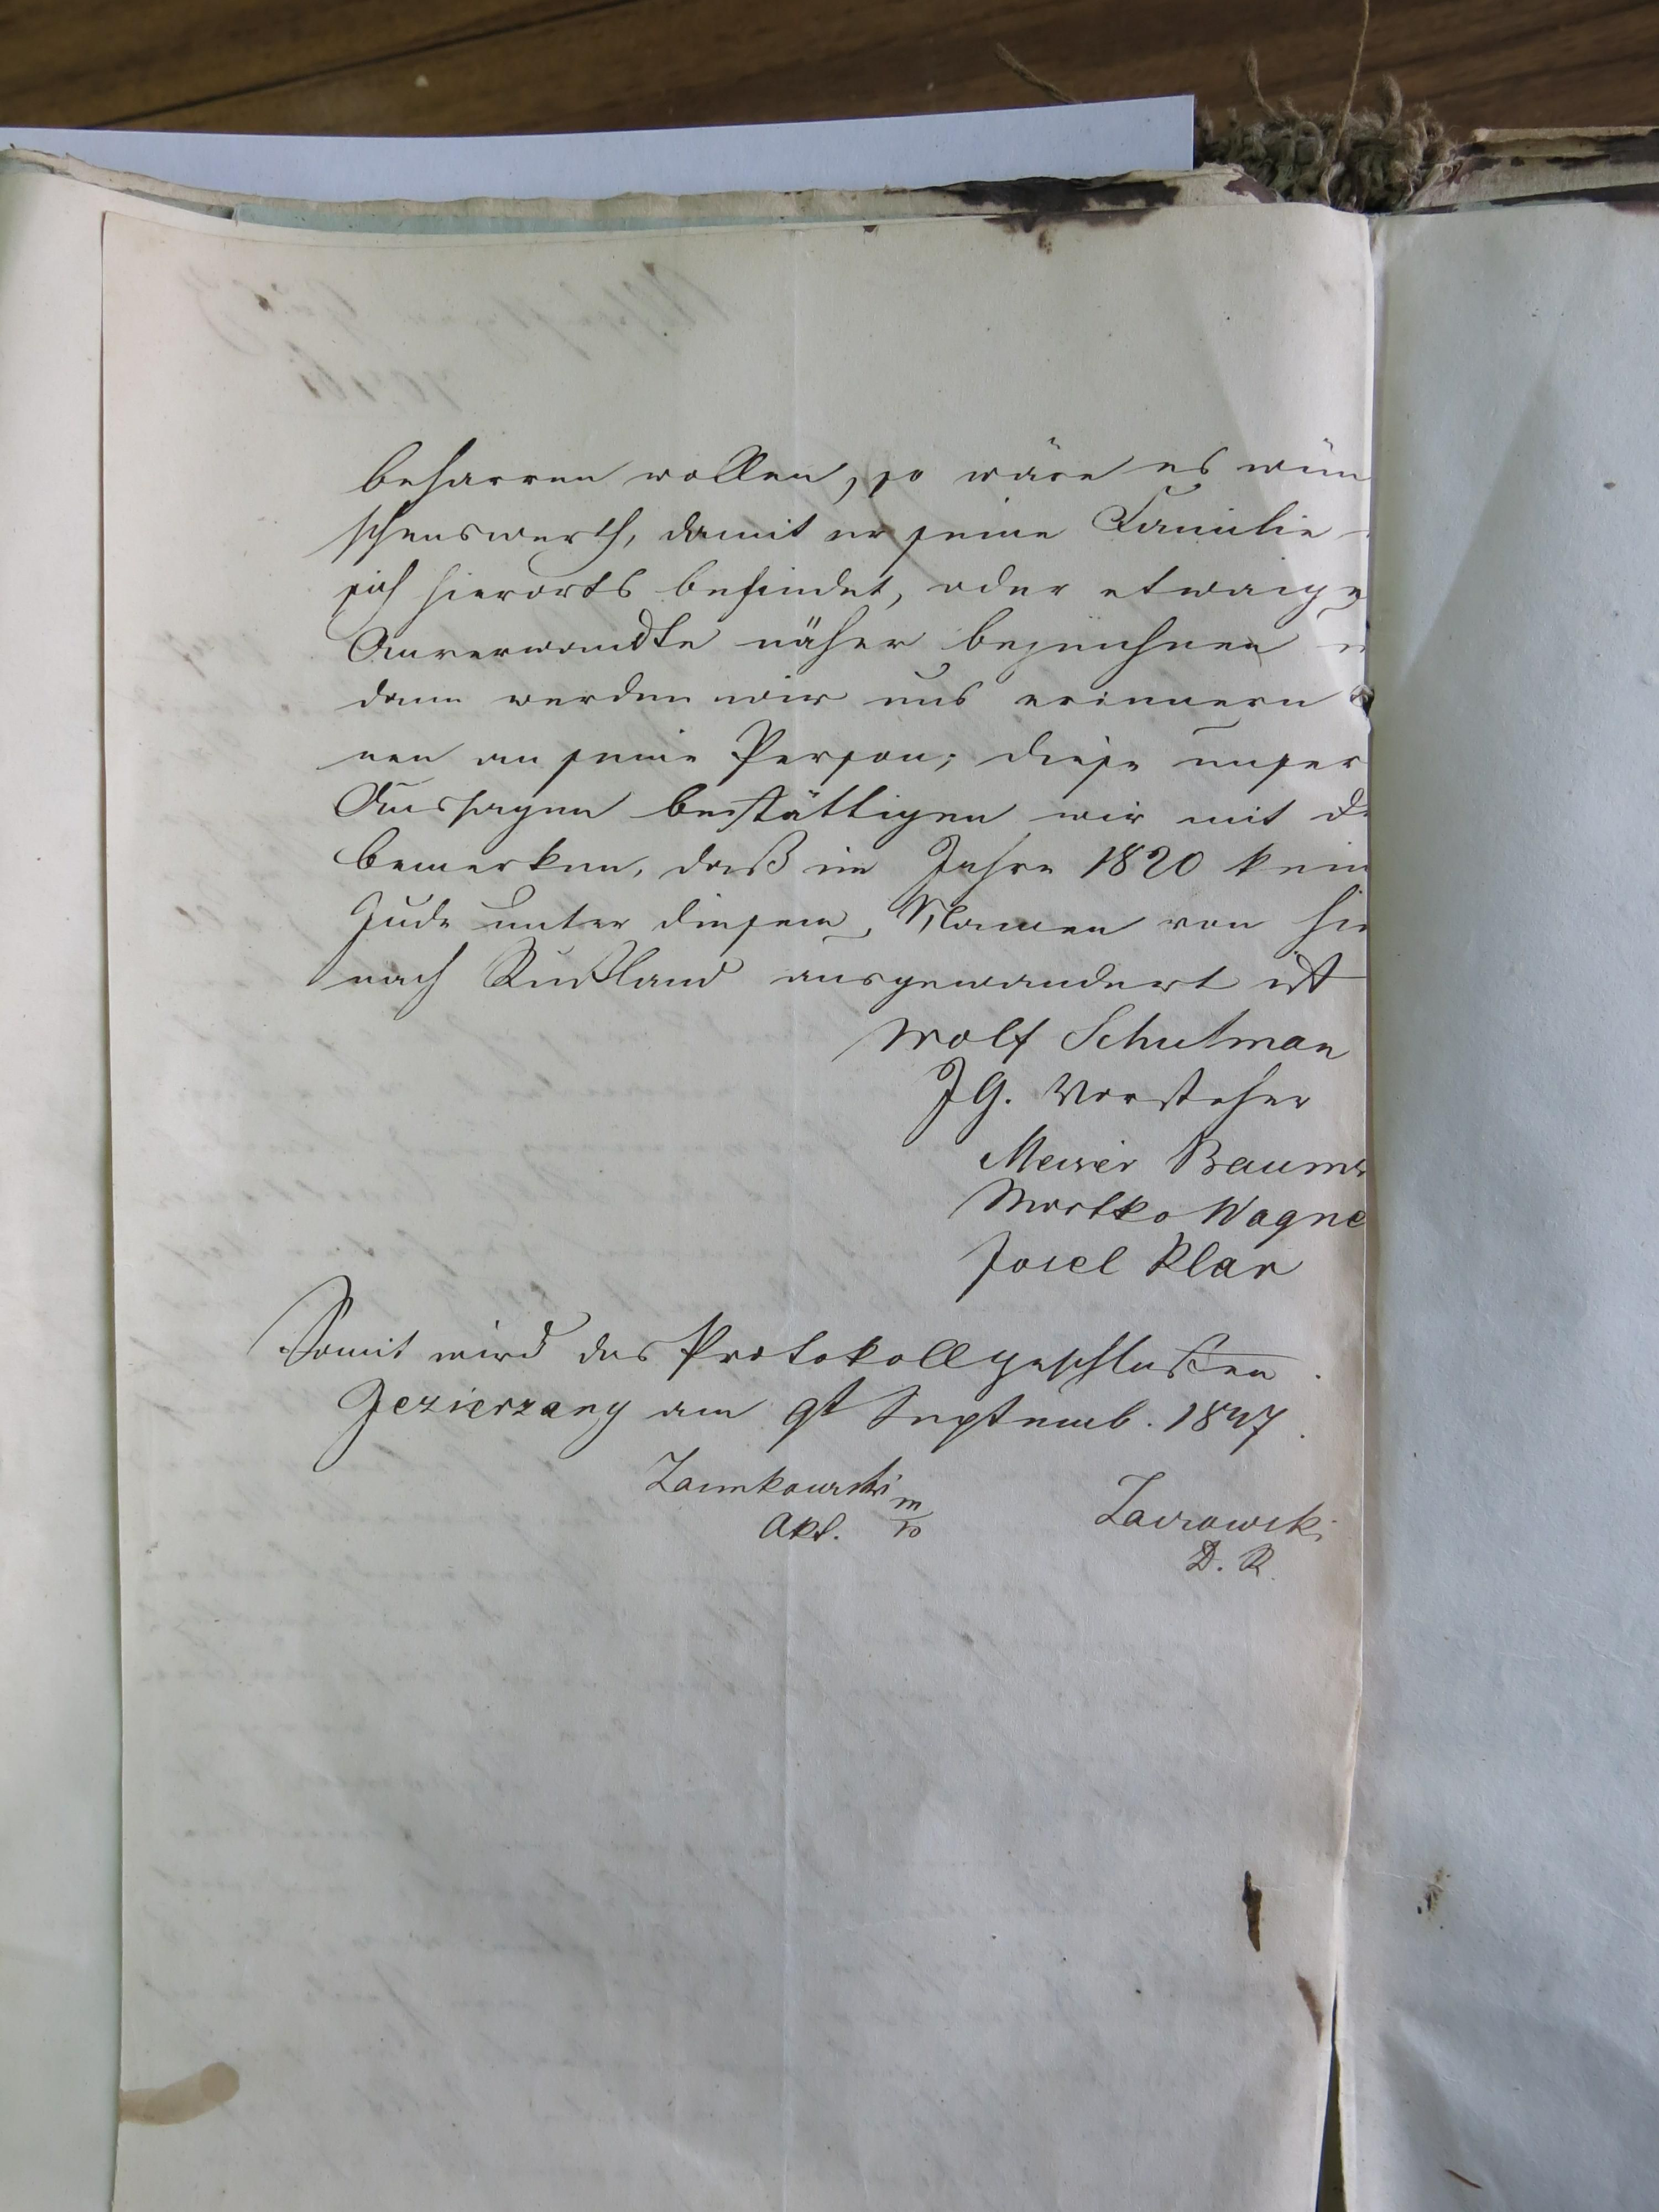 beharren wollen, so wäre es wün
schenswerth, damit er seine Familie
sich hierorts befindet, oder etwaige
Anverwandte näher bezeichnen
dann werden wir uns erinnern
nen an seine Person; diese unser
Aussagen bestättigen wir mit de
bemerken, daß im Jahre 1820 kein
Jude unter diesem Namen von hie
nach Rußland ausgewandert ist
Wolf Schulman
JG. Vorsteher
Meier Baum
Mortko Wagne
Josel Klar
Somit wird das Protokoll geschloßen.
Jezierzany am 9t Septemb. 1847.
Zamkowski m/p
Akt.
D. R.